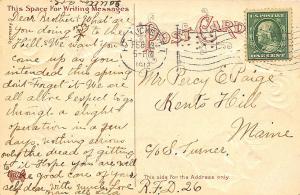 This Space For Writing Messages
POST CARD
Dear Brother: What are
you doing to the
Hill. We want you
come up as you
intended this spring
dont forget it. We are
all alive. Expect to go
through a slight
operation in a few
days. Nothing serious
but the dread of getting
to it. Hope you are well
Take good care of your
self dear with much love
Mr Percy E Paige
Kents Hill
Maine
C/o S. Turner,
R.F.D. 26
This side for the Address only.
FEB
ONE CENT
GERMANY